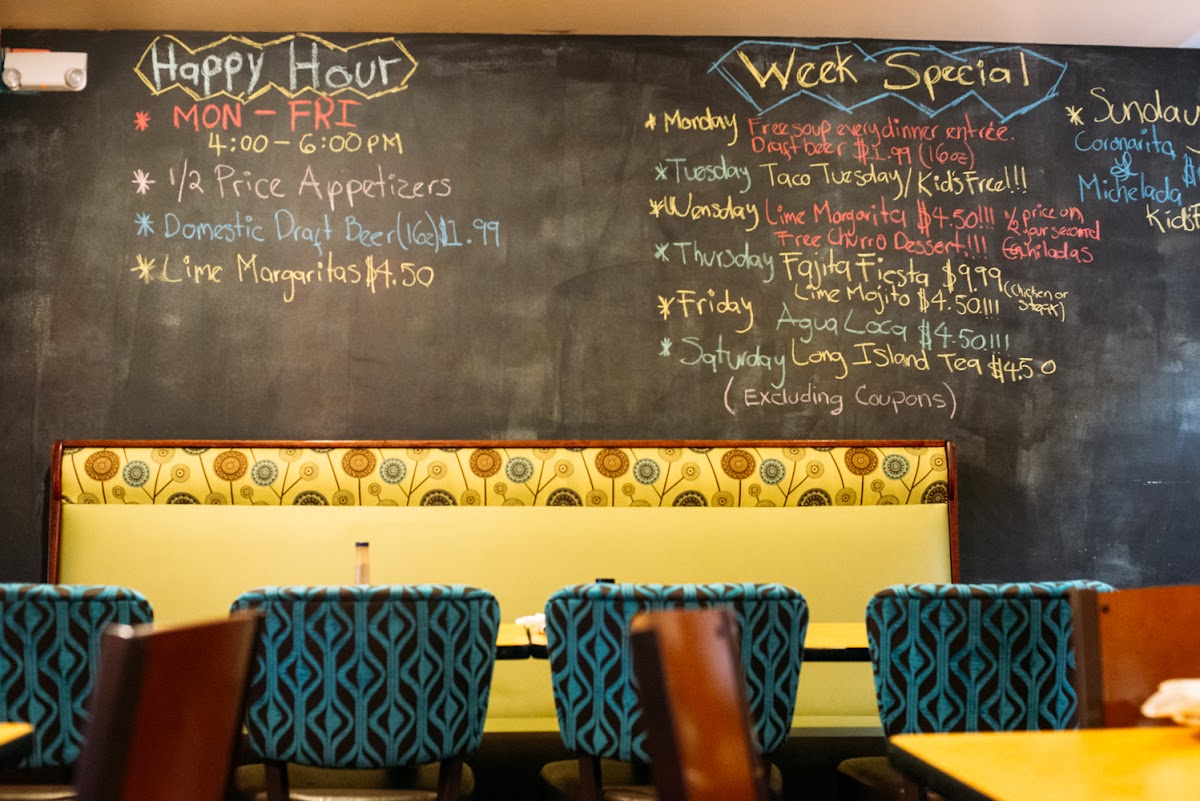 Happy Hour
* MON - FRI
4:00 - 6:00 PM
* 1/2 Price Appetizers
* Domestic Draft Beer (16oz) $1.99
* Lime Margaritas $4.50
Week Special
* Monday Free soup every dinner entrée.
Draft beer $1.99 (16oz)
* Tuesday Taco Tuesday / Kid's Free!!!
* Wensday Lime Margarita $4.50!!! 1/2 price on your second
Free Churro Dessert!!! Enchiladas
* Thursday Fajita Fiesta $9.99 (Chicken or Steak)
Lime Mojito $4.50!!!
* Friday Agua Loca $4.50!!!
* Saturday Long Island Tea $4.50
(Excluding Coupons)
* Sunday
Coronarita
&
Michelada
Kid's